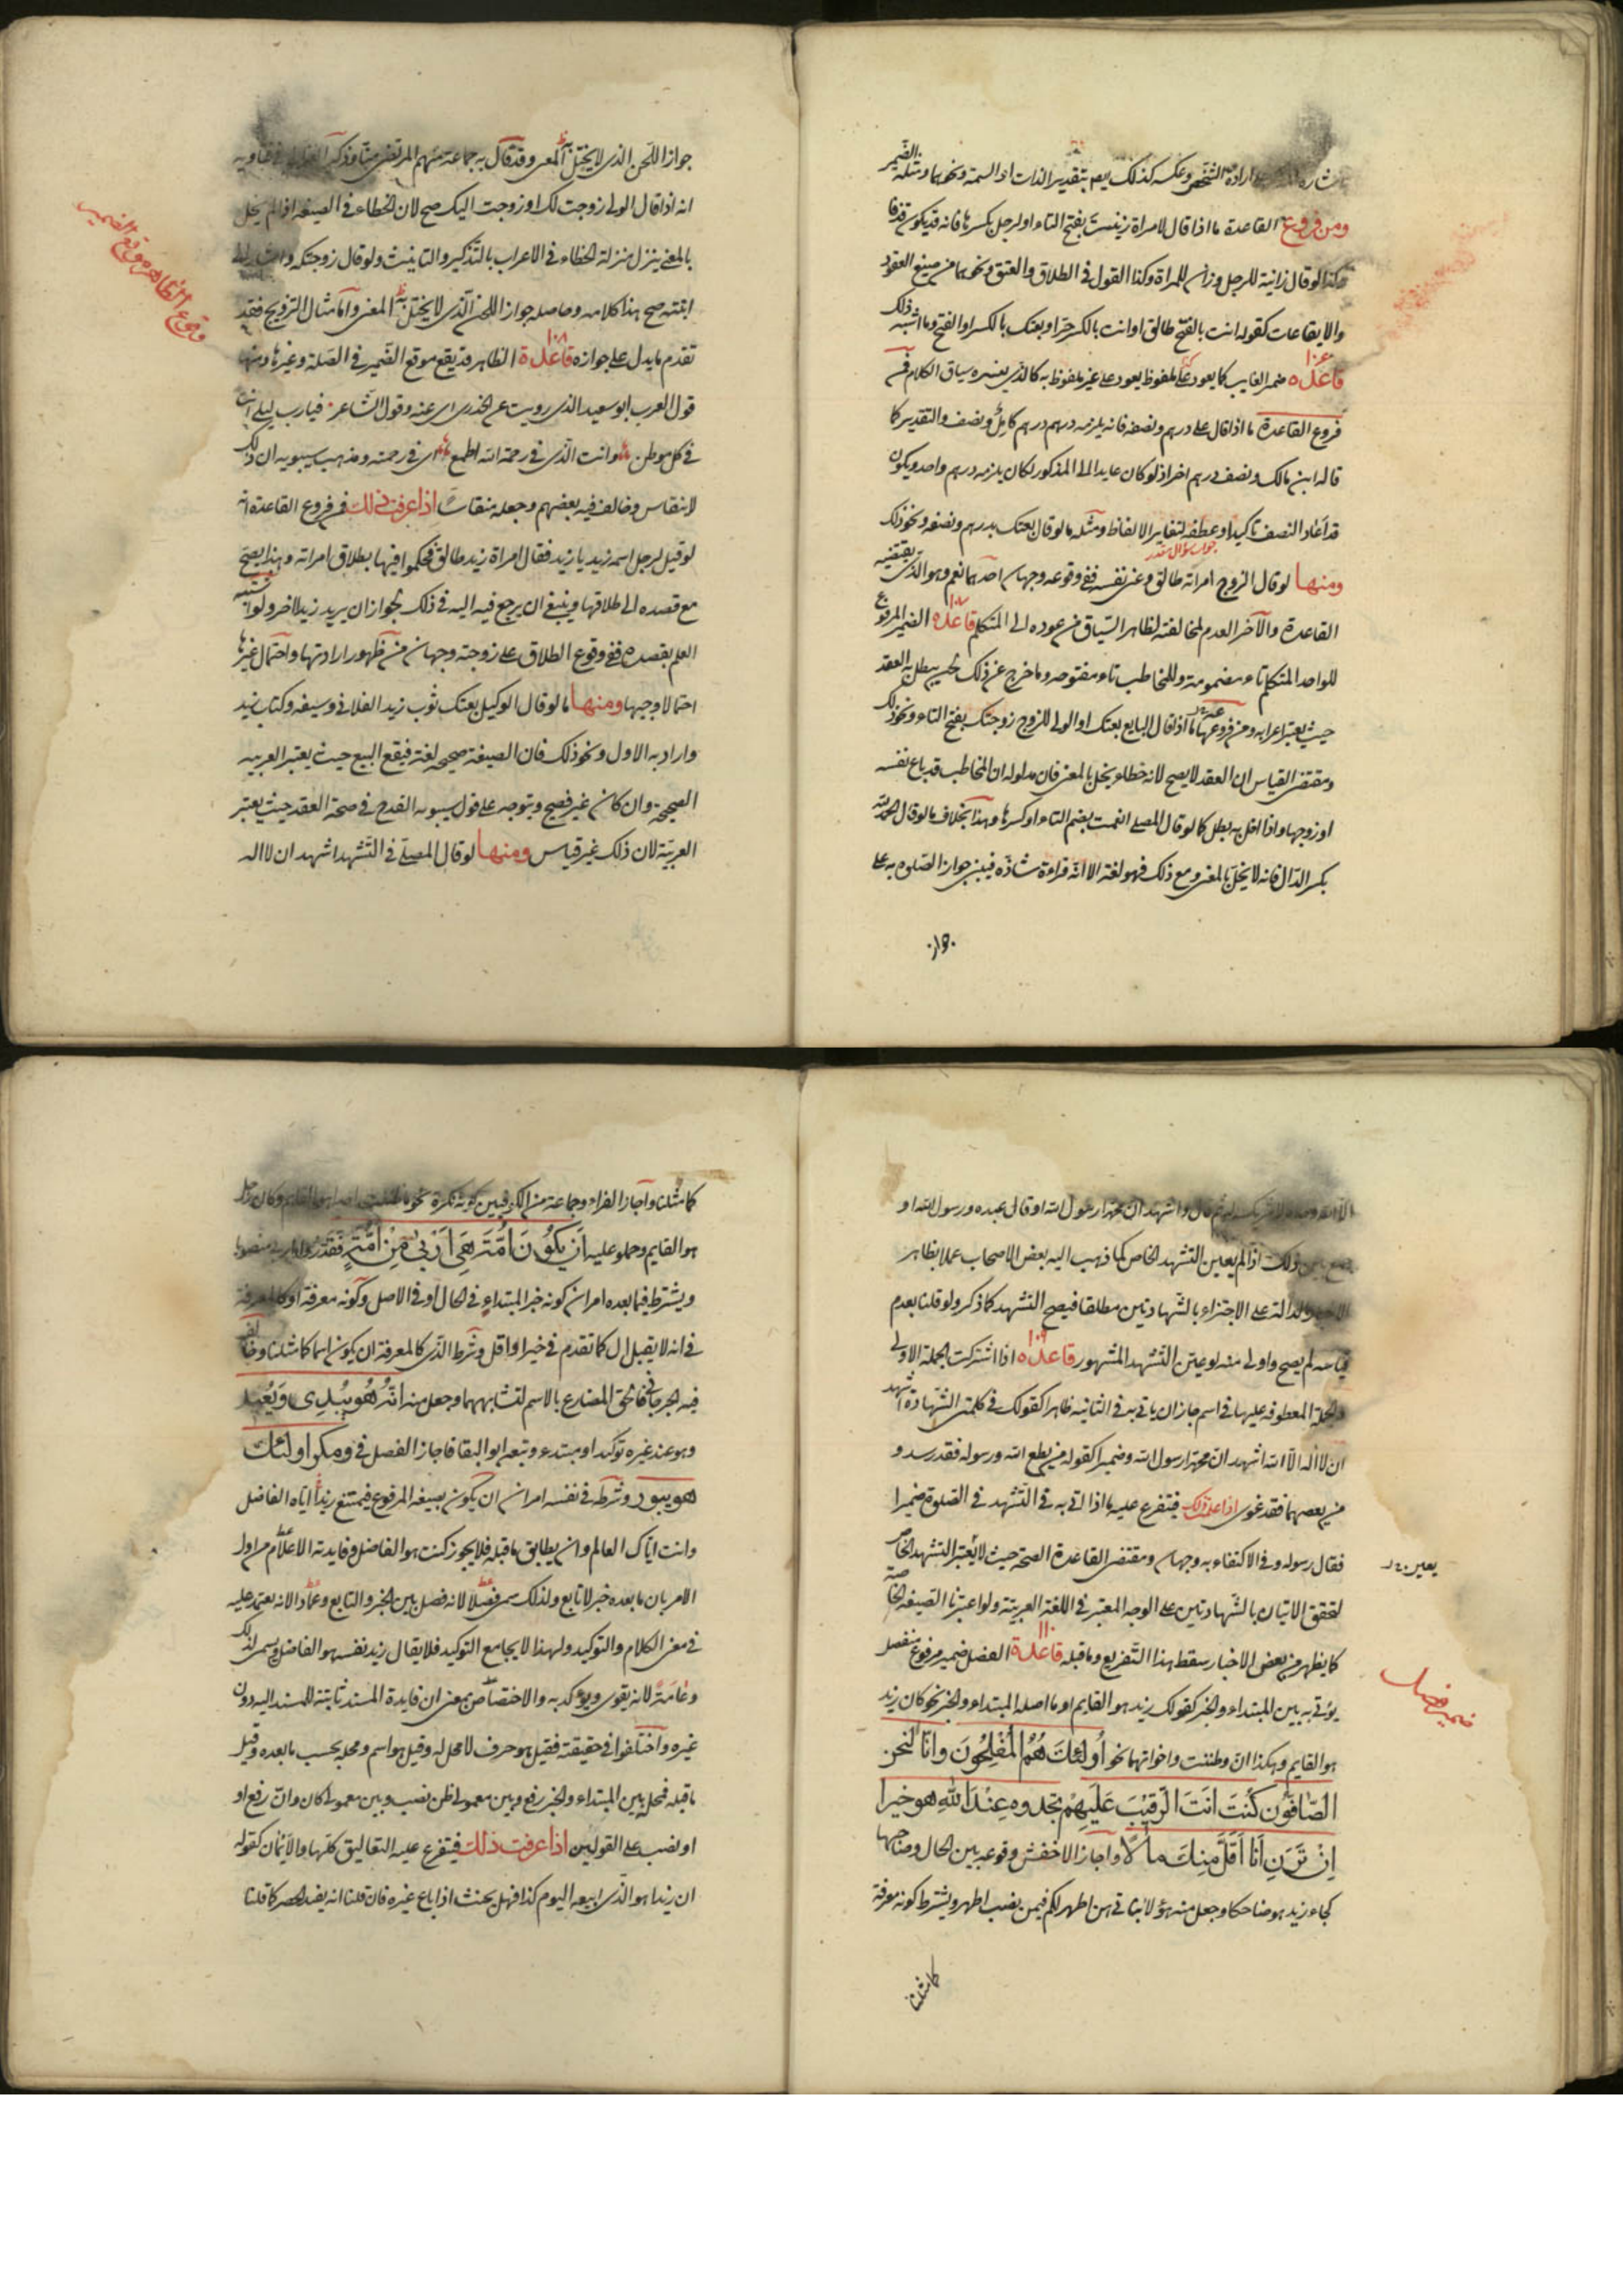 اراده الشخص وعكسه كذلك يصح بتقدير الذات او السمة ونحوهما ومثله الضمير
ومن فروع القاعدة ما اذا قال لامراة زنيت بفتح التاء او لرجل بكسرها فانه قد يكون قذفا
وكذا لو قال زانية للرجل وزان للمراة وكذا القول فى الطلاق والعتق ونحوهما من صيغ العقود
والايقاعات كقوله انت بالفتح طالق او انت بالكسر حر او بعتك بالكسر او الفتح وما اشبه ذلك
قاعده ضمير الغايب كما يعود على ملفوظ يعود على غير ملفوظ به كالذى يفسره سياق الكلام فمن
فروع القاعدة ما اذا قال على درهم ونصفه فانه يلزمه درهم كامل ونصف والتقدير كما
قاله ابن مالك ونصف درهم اخر اذ لو كان عايدا الى المذكور لكان يلزمه درهم واحد ويكون
قد اعاد النصف تاكيدا وعطفه لتغاير الالفاظ ومثله ما لو قال بعتك بدرهم ونصفه ونحو ذلك
جواب سؤال مقدر
ومنها لو قال الزوج امراته طالق وعنى نفسه ففى وقوعه وجهان احدهما نعم وهو الذى يقتضيه
القاعدة والآخر العدم لمخالفته لظاهر السياق من عوده الى المتكلم قاعده الضمير المرفوع
للواحد المتكلم تاء مضمومة وللمخاطب تاء مفتوحه وما خرج عن ذلك لحن يبطل به العقد
حيث يعتبر اعرابه ومن فروعها ما اذا قال البايع بعتك او الولى للزوج زوجتك بفتح التاء ونحو ذلك
ومقتضى القياس ان العقد لا يصح لانه خطاء يخل بالمعنى فان مدلوله ان المخاطب قد باع نفسه
او زوجها واذا اخل به بطل كما لو قال المصلى انعمت بضم التاء او كسرها وهذا بخلاف ما لو قال الحمد لله
بكسر الدال فانه لا يخل بالمعنى ومع ذلك فهو لغة الا انه قراءة شاذه فيبنى جواز الصلوة به على
جواز اللحن الذى لا يختل به المعنى وقد قال به جماعة منهم المرتضى منا وذكر
انه اذا قال الولى زوجت لك او زوجت اليك صح لان الخطاء فى الصيغه اذا لم يخل
بالمعنى ينزل منزلة الخطاء فى الاعراب بالتذكير والتانيث ولو قال زوجتكه واشار الى
ابنته صح هذا كلامه وحاصله جواز اللحن الذى لا يختل به المعنى واما مثال التزويج فقد
تقدم ما يدل على جوازه قاعدة ١٠٨ الظاهر قد يقع موقع الضمير فى الصلة وغيرها ومنها
وقوع الظاهر موقع الضمير
قول العرب ابو سعيد الذى رويت عن الخدرى اى عنه وقول الشاعر فيا رب ليلى انت
فى كل موطن وانت الذى فى رحمة الله اطمع اى فى رحمته ومذهب سيبويه ان ذلك
لا ينقاس وخالف فيه بعضهم وجعله منقاسا اذا عرفت ذلك فمن فروع القاعدة انه
لو قيل لرجل اسمه زيد يا زيد فقال امراة زيد طالق فحكموا فيها بطلاق امراته وهذا يصح
مع قصده الى طلاقها وينبغى ان يرجع فيه اليه فى ذلك لجواز ان يريد زيدا اخر ولو اشتبه
العلم بقصده ففى وقوع الطلاق على زوجته وجهان من ظهور ارادتها واحتمال غيرها
احتمالا وجيها ومنها ما لو قال الوكيل بعتك ثوب زيد الفلانى وسيفه وكتاب زيد
واراد به الاول ونحو ذلك فان الصيغة صحيحه لغة فيقع البيع حيث يعتبر العربيه
الصحيحة وان كان غير فصيح ويتوجه على قول سيبويه القدح فى صحة العقد حيث يعتبر
العربية لان ذلك غير قياس ومنها لو قال المصلى فى التشهد اشهد ان لا اله
الا الله وحده لا شريك له ثم قال واشهد ان محمدا رسول الله او قال عبده ورسول الله او
ذلك اذا لم يعين التشهد الخاص كما ذهب اليه بعض الاصحاب عملا بظاهر
الاخبار الدالة على الاجتزاء بالشهادتين مطلقا فيصح التشهد كما ذكر ولو قلنا بعدم
قياسه لم يصح واولى منه لو عين التشهد المشهور قاعدة ١٠٩ اذا اشتركت الجملة الاولى
والجملة المعطوفه عليها فى اسم جاز ان ياتى به فى الثانية ظاهرا كقولك فى كلمتى الشهادة اشهد
ان لا اله الا الله اشهد ان محمدا رسول الله وضميرا كقوله من يطع الله ورسوله فقد رشد و
من يعصهما فقد غوى اذا علمت ذلك فيتفرع عليه ما اذا اتى به فى التشهد فى الصلوة ضميرا
فقال رسوله وفى الاكتفاء به وجهان ومقتضى القاعدة الصحة حيث لا يعتبر التشهد الخاص
لتحقق الاتيان بالشهادتين على الوجه المعتبر فى اللغة العربية ولو اعتبرنا الصيغه الخاصة
كما يظهر من بعض الاخبار سقط هذا التفريع وما قبله قاعدة ١١٠ الفصل ضمير مرفوع منفصل
ضمير فصل
يؤتى به بين المبتداء والخبر كقولك زيد هو القايم او ما اصله المبتداء والخبر نحو كان زيد
هو القايم وهكذا ان وظننت واخواتهما نحو أولئك هم المفلحون وانا لنحن
الصافون كنت انت الرقيب عليهم تجدوه عند الله هو خيرا
ان ترن انا اقل منك مالا واجاز الاخفش وقوعه بين الحال وصاحبها
كجاء زيد هو ضاحكا وجعل منه هؤلاء بناتى هن اطهر لكم فيمن نصب اطهر ويشترط كونه معرفة
كما مثلنا
كما مثلنا واجاز الفراء وجماعة من الكوفيين كونه نكرة نحو ما ظننت احدا هو القايم وكان رجل
هو القايم وحملوا عليه ان يكون امة هى اربى من امة فقدروا اربى منصوبا
ويشترط فيما بعده امران كونه خبر المبتداء فى الحال او فى الاصل وكونه معرفة او كالمعرفة
فى انه لا يقبل ال كما تقدم فى خيرا واقل وشرط الذى كالمعرفة ان يكون اسما كما مثلنا وخالف
فيه الجرجانى فالحق المضارع بالاسم لتشابههما وجعل منه انه هو يبدئ ويعيد
وهو عند غيره توكيد او مبتدء وتبعه ابو البقا فاجاز الفصل فى ومكر اولئك
هو يبور وشرطه فى نفسه امران ان يكون بصيغه المرفوع فيمتنع زيد اياه الفاضل
وانت اياك العالم وان يطابق ما قبله فلا يجوز كنت هو الفاضل وفايدته الاعلام من اول
الامر بان ما بعده خبر لا تابع ولذلك سمى فصلا لانه فصل بين الخبر والتابع وعمادا لانه يعتمد عليه
فى معنى الكلام والتوكيد ولهذا لا يجامع التوكيد فلا يقال زيد نفسه هو الفاضل ويسمى لذلك
دعامة لانه يقوى ويؤكد به والاختصاص بمعنى ان فايدة المسند ثابتة للمسند اليه دون
غيره واختلفوا فى حقيقته فقيل هو حرف لا محل له وقيل هو اسم ومحله بحسب ما بعده وقيل
ما قبله فمحله بين المبتداء والخبر رفع وبين معمولى ظن نصب وبين معمولى كان وان رفع او
او نصب على القولين اذا عرفت ذلك فيتفرع عليه التعاليق كلها والايمان كقوله
ان زيدا هو الذى ابيعه اليوم كذا فهل يحنث اذا باع غيره فان قلنا انه يفيد الحصر كما قلنا